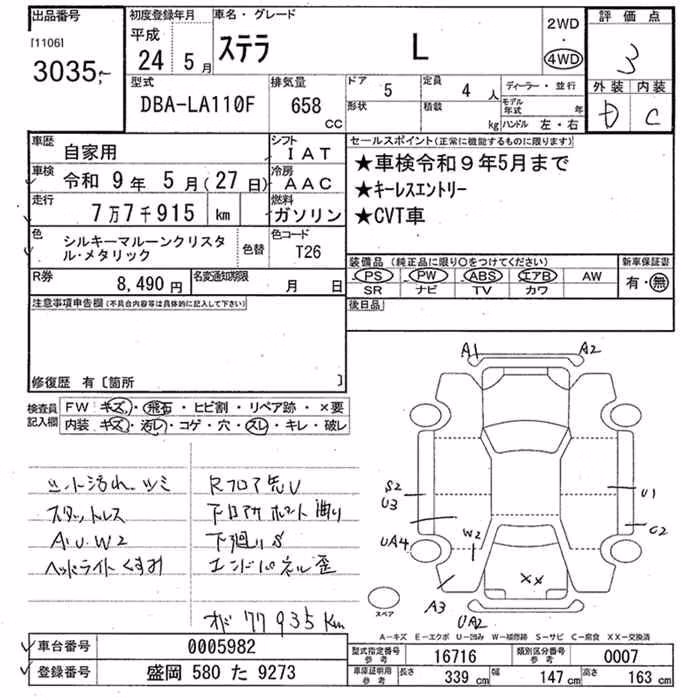 出品番号
[1106]
3035
初度登録年月
平成
24 5月
車名・グレード
ステラ L
2WD
・
4WD
評価点
3
外装 内装
D C
型式
DBA-LA110F
排気量
658 CC
ドア 5
定員 4人
形状
積載 kg
ディーラー・並行
モデル年式 年
ハンドル 左・右
車歴 自家用
シフト IAT
車検 令和 9年 5月(27日)
冷房 AAC
走行 7万7千915 km
燃料 ガソリン
色 シルキーマルーンクリスタル・メタリック
色替
色コード T26
R券 8,490円
名変通知期限 月 日
セールスポイント(正常に機能するものに限ります)
★車検令和9年5月まで
★キーレスエントリー
★CVT車
装備品(純正品に限り○をつけてください)
PS PW ABS エアB AW
SR ナビ TV カワ
新車保証書
有・無
後日品
注意事項申告欄(不具合内容等は具体的に記入して下さい)
修復歴 有〔箇所 〕
検査員記入欄
FW キズ・飛石・ヒビ割・リペア跡・×要
内装 キズ・汚レ・コゲ・穴・スレ・キレ・破レ
シート汚れ、シミ
スタットレス
A.U.W2
ヘッドライトくすみ
Rフロア先U
下廻りS
エンドパネル歪
オド 77935Km
A1 A2
S2
U3
U1
C2
UA4
W2
A3
××
UA2
スペア
A-キズ E-エクボ U-凹み W-補修跡 S-サビ C-腐食 XX-交換済
車台番号 0005982
登録番号 盛岡 580 た 9273
型式指定番号 参考 16716
類別区分番号 参考 0007
車庫証明用 参考 長さ 339cm 幅 147cm 高さ 163cm